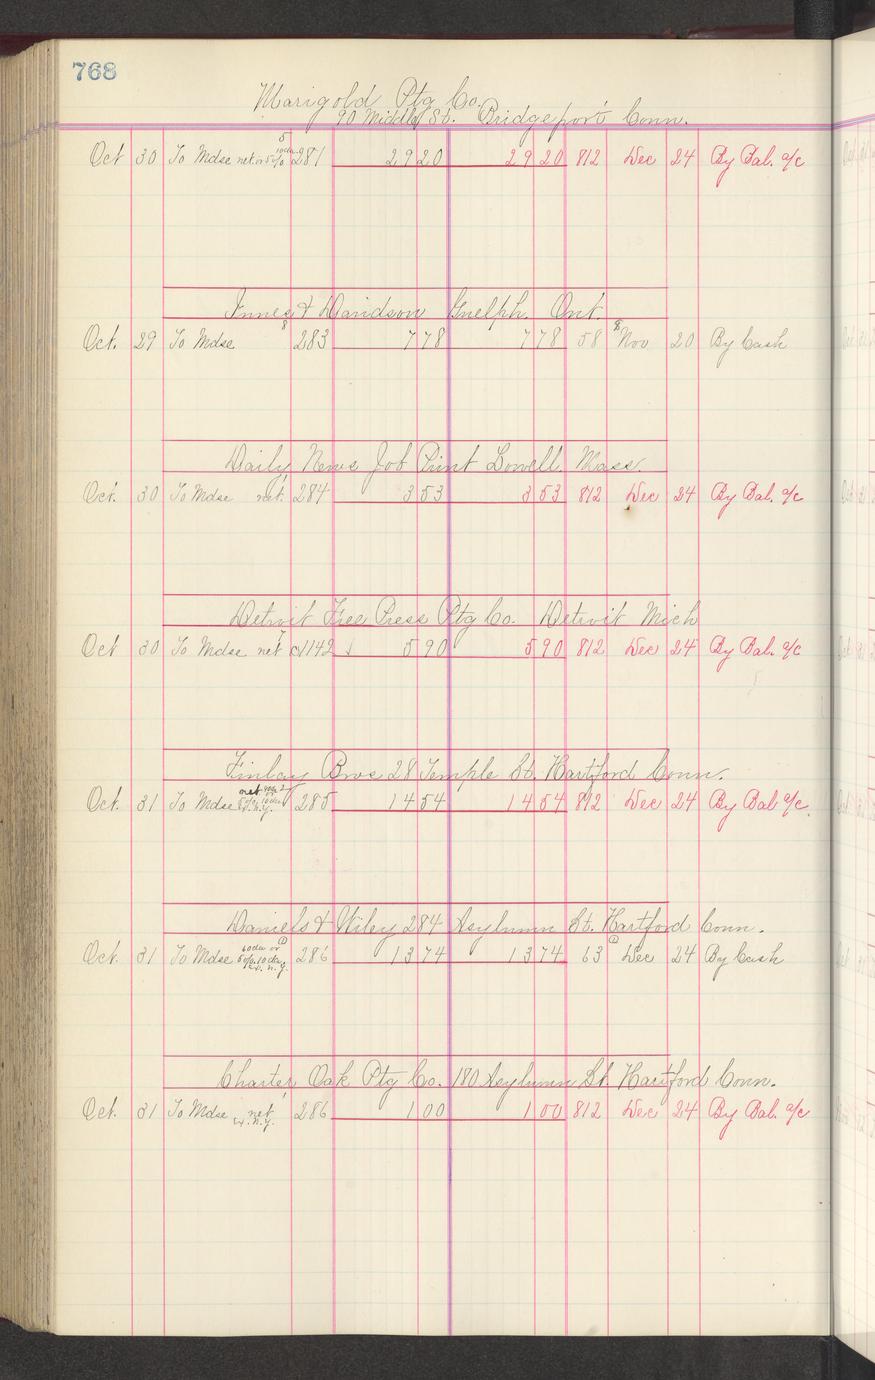 768
Marigold Ptg Co.
90 Middle St. Bridgeport Conn.
5
Oct 30 To Mdse net or 5% 10 da 281 29 20 29 20 812 Dec 24 By Bal. a/c
Innes & Davidson Guelph Ont.
Oct. 29 To Mdse 8 283 7 78 7 78 58 8 Nov 20 By Cash
Daily News Job Print Lowell Mass.
Oct. 30 To Mdse net 1 284 3 53 3 53 812 Dec 24 By Bal. a/c
Detroit Free Press Ptg Co. Detroit Mich
Oct 30 To Mdse net 7 c1142 5 90 5 90 812 Dec 24 By Bal. a/c
Finlay Bros 28 Temple St. Hartford Conn.
Oct. 31 To Mdse net 5% 10 da N.Y. 285 14 54 14 54 812 Dec 24 By Bal a/c
Daniels & Wiley 284 Asylumn St. Hartford Conn.
Oct. 31 To Mdse 60 da or 5% 10 da N.Y. 1 286 13 74 13 74 63 1 Dec 24 By Cash
Charter Oak Ptg Co. 180 Asylumn St. Hartford Conn.
Oct. 31 To Mdse net N.Y. 1 286 1 00 1 00 812 Dec 24 By Bal. a/c